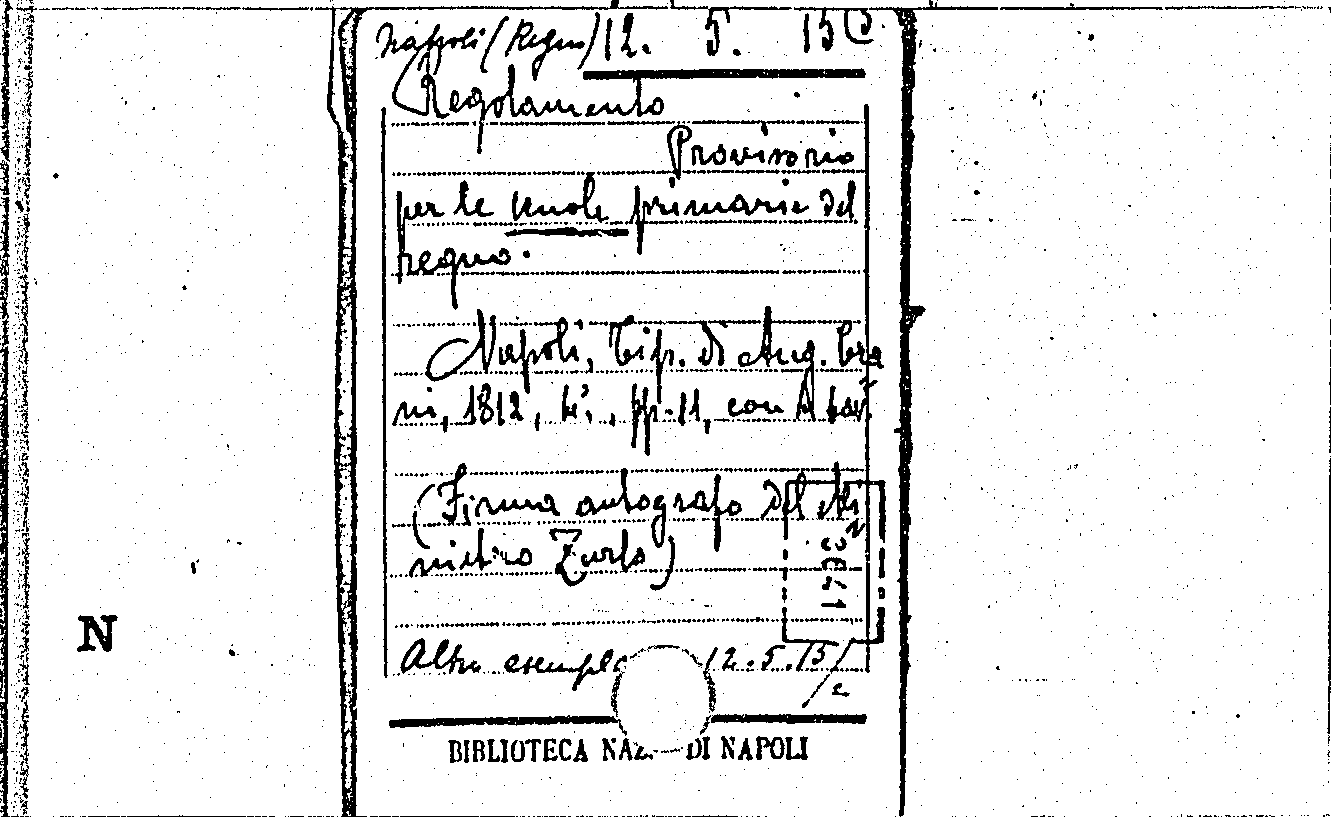 Napoli (Regno) 12. 5. 15 (3.
Regolamento
Provvisorio
per le scuole primarie del
regno.
Napoli, Tip. di Ang. Tra
ni, 1812, 4°., pp. 11, con tav.
(Firma autografa del Mi
nistro Zurlo)
3641
Altro 12.5.15/2
N
BIBLIOTECA DI NAPOLI